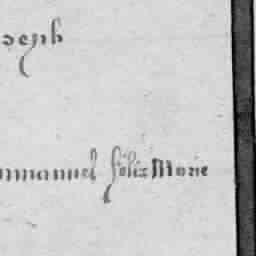 oseph
mmanuel félix Marie